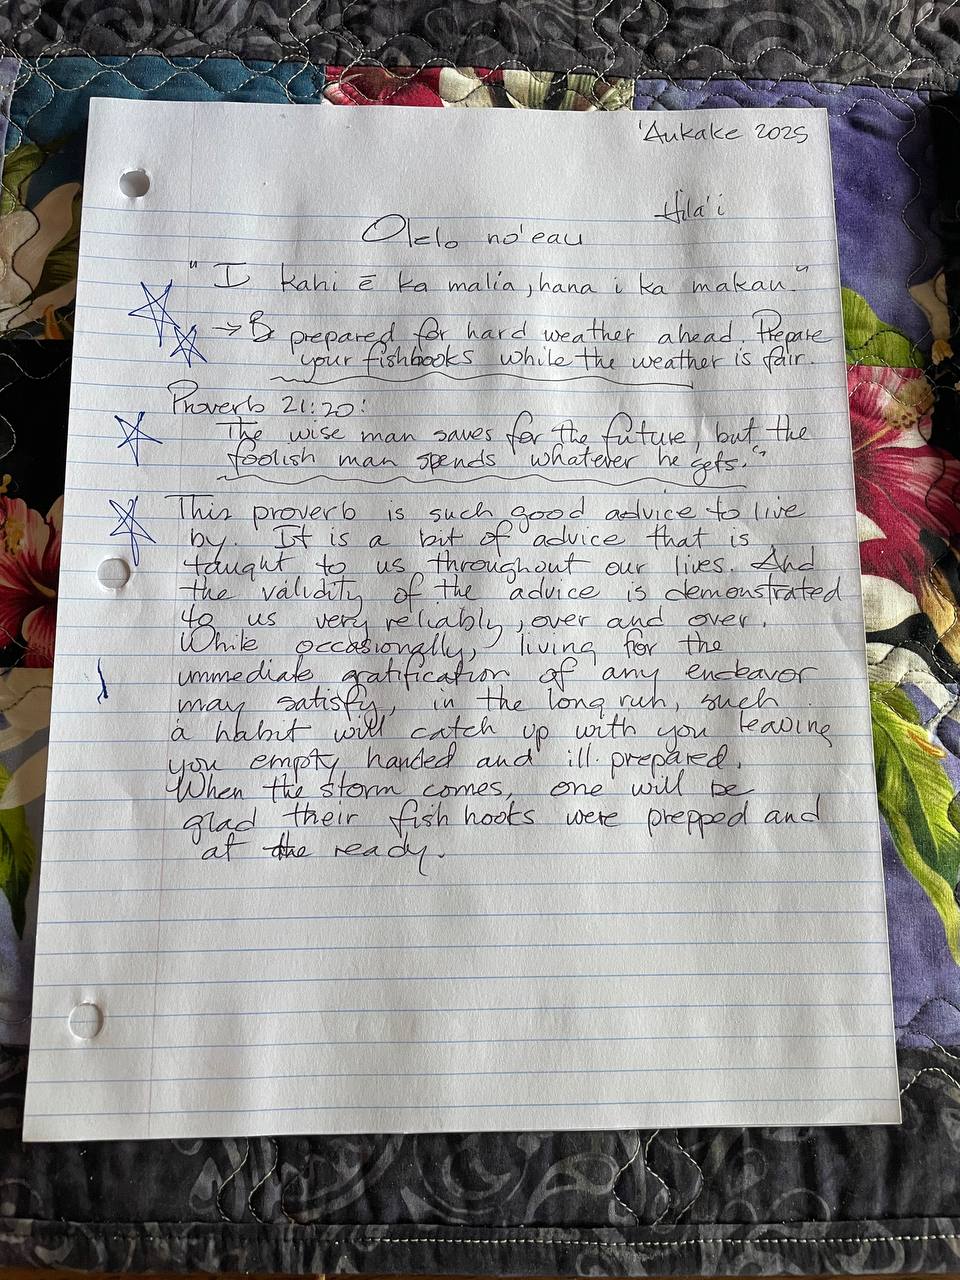 'Aukake 2025
Hila'i
Olelo no'eau
"I kahi ē ka malia, hana i ka makau."
→ Be prepared for hard weather ahead. Prepare
your fishhooks while the weather is fair.
Proverb 21:20:
The wise man saves for the future, but the
foolish man spends whatever he gets."
This proverb is such good advice to live
by. It is a bit of advice that is
taught to us throughout our lives. And
the validity of the advice is demonstrated
to us very reliably, over and over.
While occasionally, living for the
immediate gratification of any endeavor
may satisfy, in the long run, such
a habit will catch up with you leaving
you empty handed and ill prepared.
When the storm comes, one will be
glad their fish hooks were prepped and
at the ready.